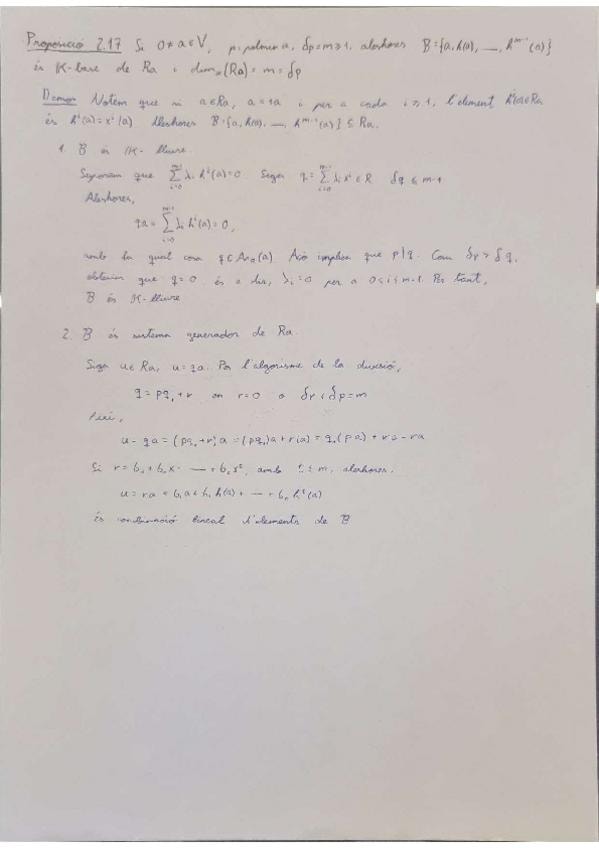 Proposició 2.17 Si 0≠a∈V, p=polmin a, δp=m≥1, aleshores B={a, h(a), —, h^{m-1}(a)}
és K-base de Ra i dim_K(Ra)=m=δp
Demos: Notem que si a∈Ra, a=1a i per a cada i≥1, l'element h^i(a)∈Ra
és h^i(a)=x^i(a). Aleshores B={a, h(a), —, h^{m-1}(a)}⊆Ra.
1. B és K-lliure.
Suposem que Σ_{i=0}^{m-1} λ_i h^i(a)=0 Sigui q=Σ_{i=0}^{m-1} λ_i x^i∈R δq≤m-1
Aleshores,
qa=Σ_{i=0}^{m-1} λ_i h^i(a)=0,
amb la qual cosa q∈An_R(a). Això implica que p|q. Com δp>δq,
obtenim que q=0 és a dir, λ_i=0 per a 0≤i≤m-1. Per tant,
B és K-lliure
2. B és sistema generador de Ra.
Sigui u∈Ra, u=qa. Per l'algorisme de la divisió,
q=pq_1+r on r=0 o δr<δp=m
Però,
u=qa=(pq_1+r)a=(pq_1)a+r(a)=q_1(pa)+ra=ra
Si r=b_0+b_1x+ — +b_s x^s, amb s≤m, aleshores,
u=ra=b_0a+b_1h(a)+ — +b_s h^s(a)
és combinació lineal d'elements de B